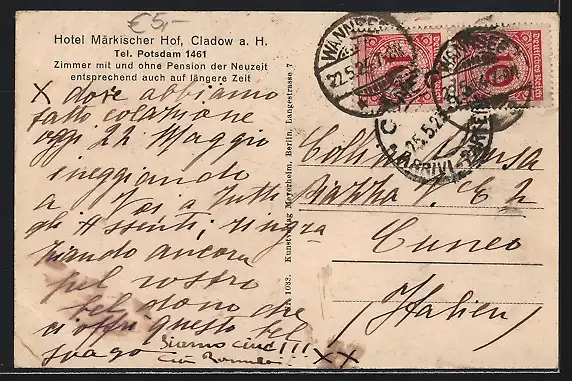 €5,-
Hotel Märkischer Hof, Cladow a. H.
Tel. Potsdam 1461
Zimmer mit und ohne Pension der Neuzeit
entsprechend auch auf längere Zeit
X dove abbiamo
fatto colazione
oggi 22 Maggio
inneggiando
a Voi a tutti
gli Assenti; ringra
ziando ancora
pel vostro
bel dono che
ci offre questo bel
svago Siamo cinci!!!
XX
Nr. 1083. Kunstverlag Meyerheim, Berlin, Langestrasse 7
WANNSEE
22.5.2
WANNSEE
Deutsches Reich
CUNEO
25.5.2
ARRIVI
Piazza V. E. 2
Cuneo
(Italien)